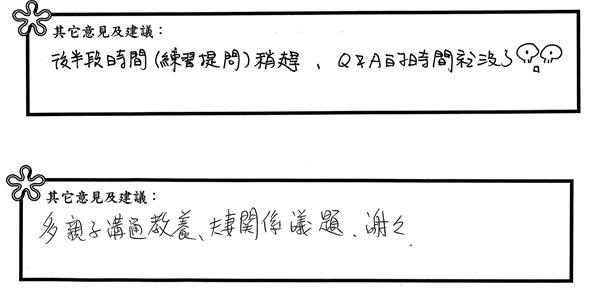 其它意見及建議：
後半段時間(練習提問)稍趕、Q&A的時間就沒了
其它意見及建議：
多親子溝通教養、夫妻關係議題、謝々.